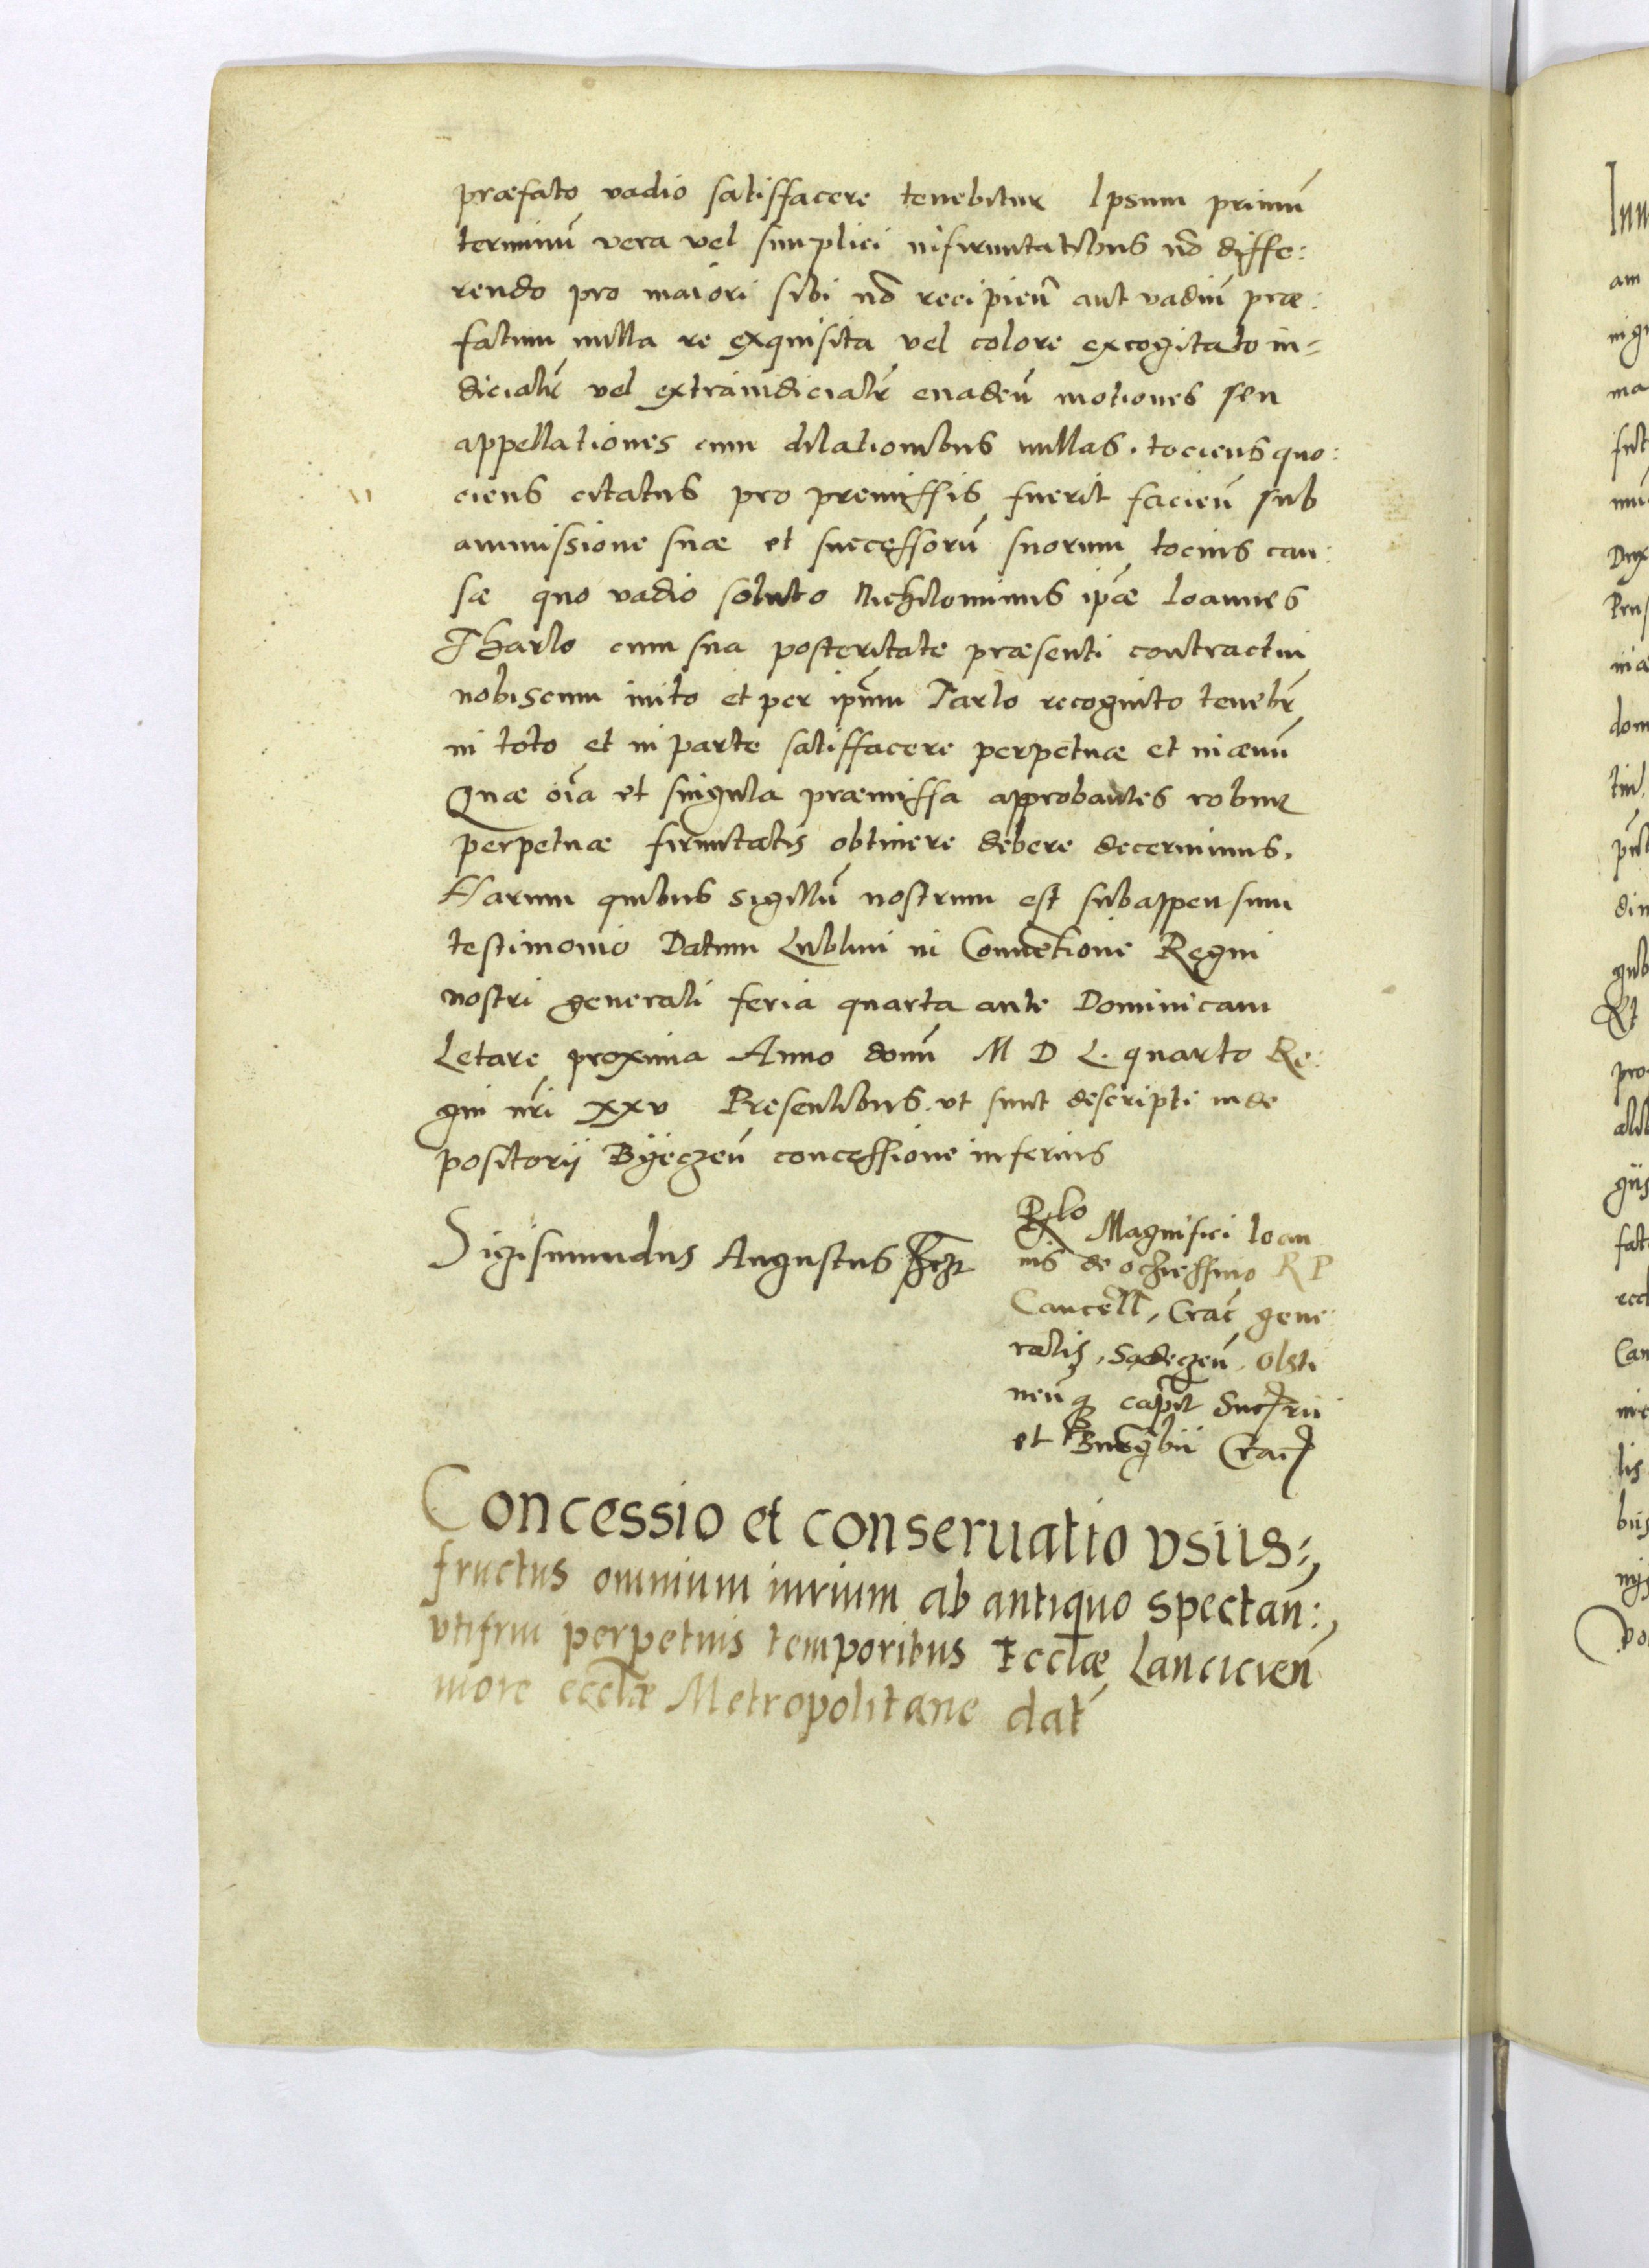 præfato vadio satisffacere tenebitur Ipsum primū
terminū vera vel simplici infirmitatibus nō diffe:
rendo pro maiori sibi nō recipieñ aut vadiū præ:
fatum nulla re exquisita vel colore excogitato iu=
dicialr̃ vel extraiudicialr̃ euadeñ motiones seu
appellationes cum dilationibus nullas. tociens quo:
ciens citatus pro premissis fuerit facieñ sub
ammissione suæ et successorū suorum tocius cau:
sæ quo vadio soluto Nichilominus ipæ Ioannes
Tharlo cum sua posteritate præsenti contractui
nobiscum inito et per ipm̃ Tarlo recognito tenebr̃
in toto et in parte satisffacere perpetuæ et in æuū
Quæ oĩa et singula præmissa approbantes robur
perpetuæ firmitatis obtinere debere decernimus.
Harum quibus sigillū nostrum est subappensum
testimonio Datum Lublini in Conuētione Regni
nostri generali feria quarta ante Dominicam
Letare proxima Anno domī M D L. quarto Re:
gni nr̃i xxv Presentibus. vt sunt descripti in de
positorij Byeczeñ concessione inferius
Sigismundus Augustus Rex
Rlo Magnifici Ioan
nis de ochieschino R P
Cancell, Crac̃ gene
ralis, Sadeczeñ, Olsti
neñ q capit
et Burgbii Crac
Concessio et conseruatio vsus=
fructus omnium iurium ab antiquo spectañ:
vtifrui perpetuis temporibus Ecclæ Lancicieñ
more ecclæ Metropolitane dat